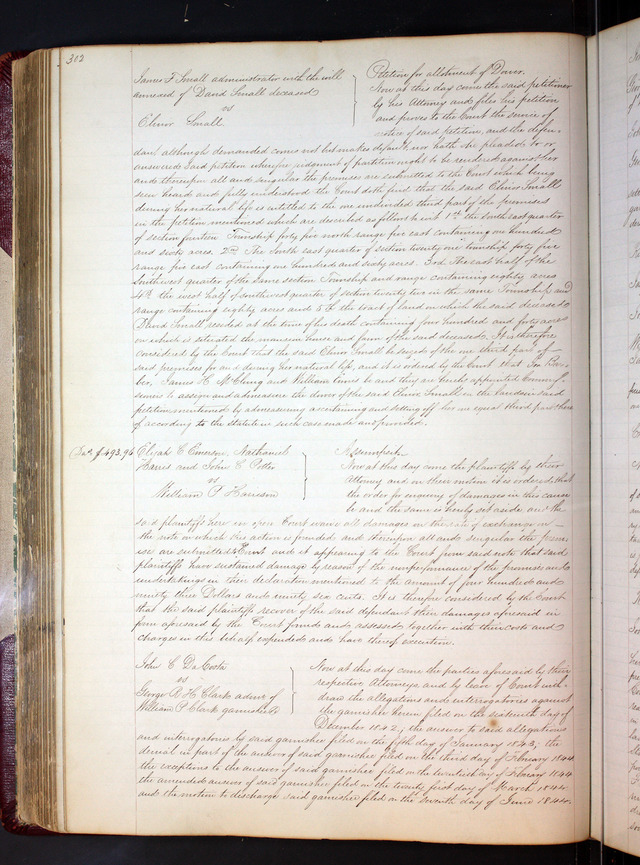 302
James F Small administrator with the will
annexed of David Small deceased
vs
Elinor Small
Petition for allotment of Dower.
Now at this day come the said petitioner
by his Attorney and files his petition
and proves to the Court the service of
notice of said petition, and the defen-
dant although demanded comes not but makes default, nor hath she pleaded to or
answered said petition wherefore judgment of partition ought to be rendered against her
and thereupon all and singular the premises are submitted to the Court which being
seen heard and fully understood the Court doth find that the said Elinor Small
during her natural life is entitled to the one undivided third part of the premises
in the petition mentioned which are described as follows to wit 1st the South east quarter
of section fourteen Township forty five north range five east containing one hundred
and sixty acres. 2nd The South east quarter of section twenty one township forty five
range five east containing one hundred and sixty acres. 3rd The east half of the
Southwest quarter of the same section Township and range containing eighty acres
4th the west half of southwest quarter of section twenty two in the same Township and
range containing eighty acres and 5th the tract of land on which the said deceased
David Small resided at the time of his death containing four hundred and forty acres
on which is situated the mansion house and farm of the said deceased. It is therefore
considered by the Court that the said Elinor Small be seized of the one third part of
said premises for and during her natural life, and it is ordered by the Court that
James H McClung and William be and they are hereby appointed Commis-
sioners to assign and admeasure the dower of the said Elinor Small in the lands in said
petition mentioned by admeasuring ascertaining and setting off her one equal third part there
of according to the statute in such case made and provided.
Da. $493.96
Elijah C Emerson, Nathaniel
Harris and John C Potter
vs
William P Harrison
Assumpsit.
Now at this day come the plaintiffs by their
Attorney and on their motion it is ordered that
the order for inquiry of damages in this cause
be and the same is hereby set aside and the
said plaintiffs here in open Court waive all damages on the rate of exchange in
the note on which this action is founded and thereupon all and singular the prem-
ises are submitted to Court and it appearing to the Court from said note that said
plaintiffs have sustained damage by reason of the nonperformance of the promises and
undertakings in their declaration mentioned to the amount of four hundred and
ninety three Dollars and ninety six cents. It is therefore considered by the Court
that the said plaintiffs recover of the said defendant their damages aforesaid in
form aforesaid by the Court found and assessed together with their costs and
charges in this behalf expended and have thereof execution.
John C DaCosta
vs
George R H Clark admr of
William P Clark garnishee
Now at this day come the parties aforesaid by their
respective Attorneys and by leave of Court with-
draw the allegations and interrogatories against
the garnishee herein filed on the sixteenth day of
December 1842, the answer to said allegations
and interrogatories by said garnishee filed on the fifth day of January 1843, the
denial in part of the answer of said garnishee filed on the third day of February 1844
the exceptions to the answer of said garnishee filed on the twentieth day of February 1844
the amended answer of said garnishee filed on the twenty first day of March 1844.
and the motion to discharge said garnishee filed on the seventh day of June 1844.